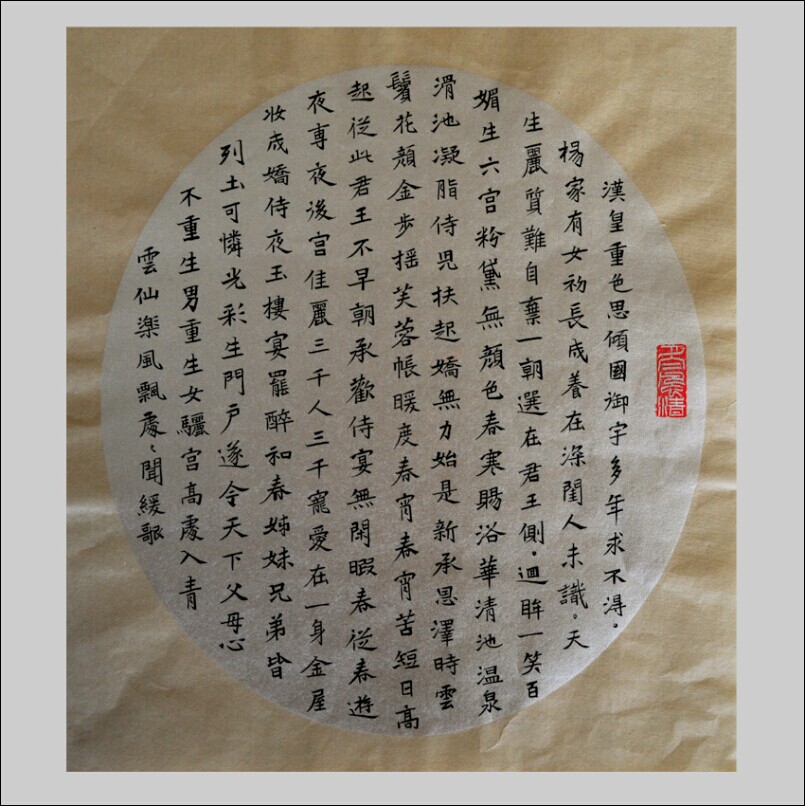 漢皇重色思傾國御宇多年求不淂。
楊家有女初長成養在深閨人未識。天
生麗質難自棄一朝選在君王側。迴眸一笑百
媚生六宮粉黛無顏色春寒賜浴華清池温泉
滑池凝脂侍児扶起嬌無力始是新承恩澤時雲
鬢花顏金步摇芙蓉帳暖度春宵春宵苦短日髙
起從此君王不早朝承歡侍宴無閑暇春從春遊
夜専夜後宮佳麗三千人三千寵愛在一身金屋
妝成嬌侍夜玉樓宴罷醉和春姊妹兄弟皆
列土可憐光彩生門戶遂令天下父母心
不重生男重生女驪宮髙處入青
雲仙楽風飄處〻聞緩歌